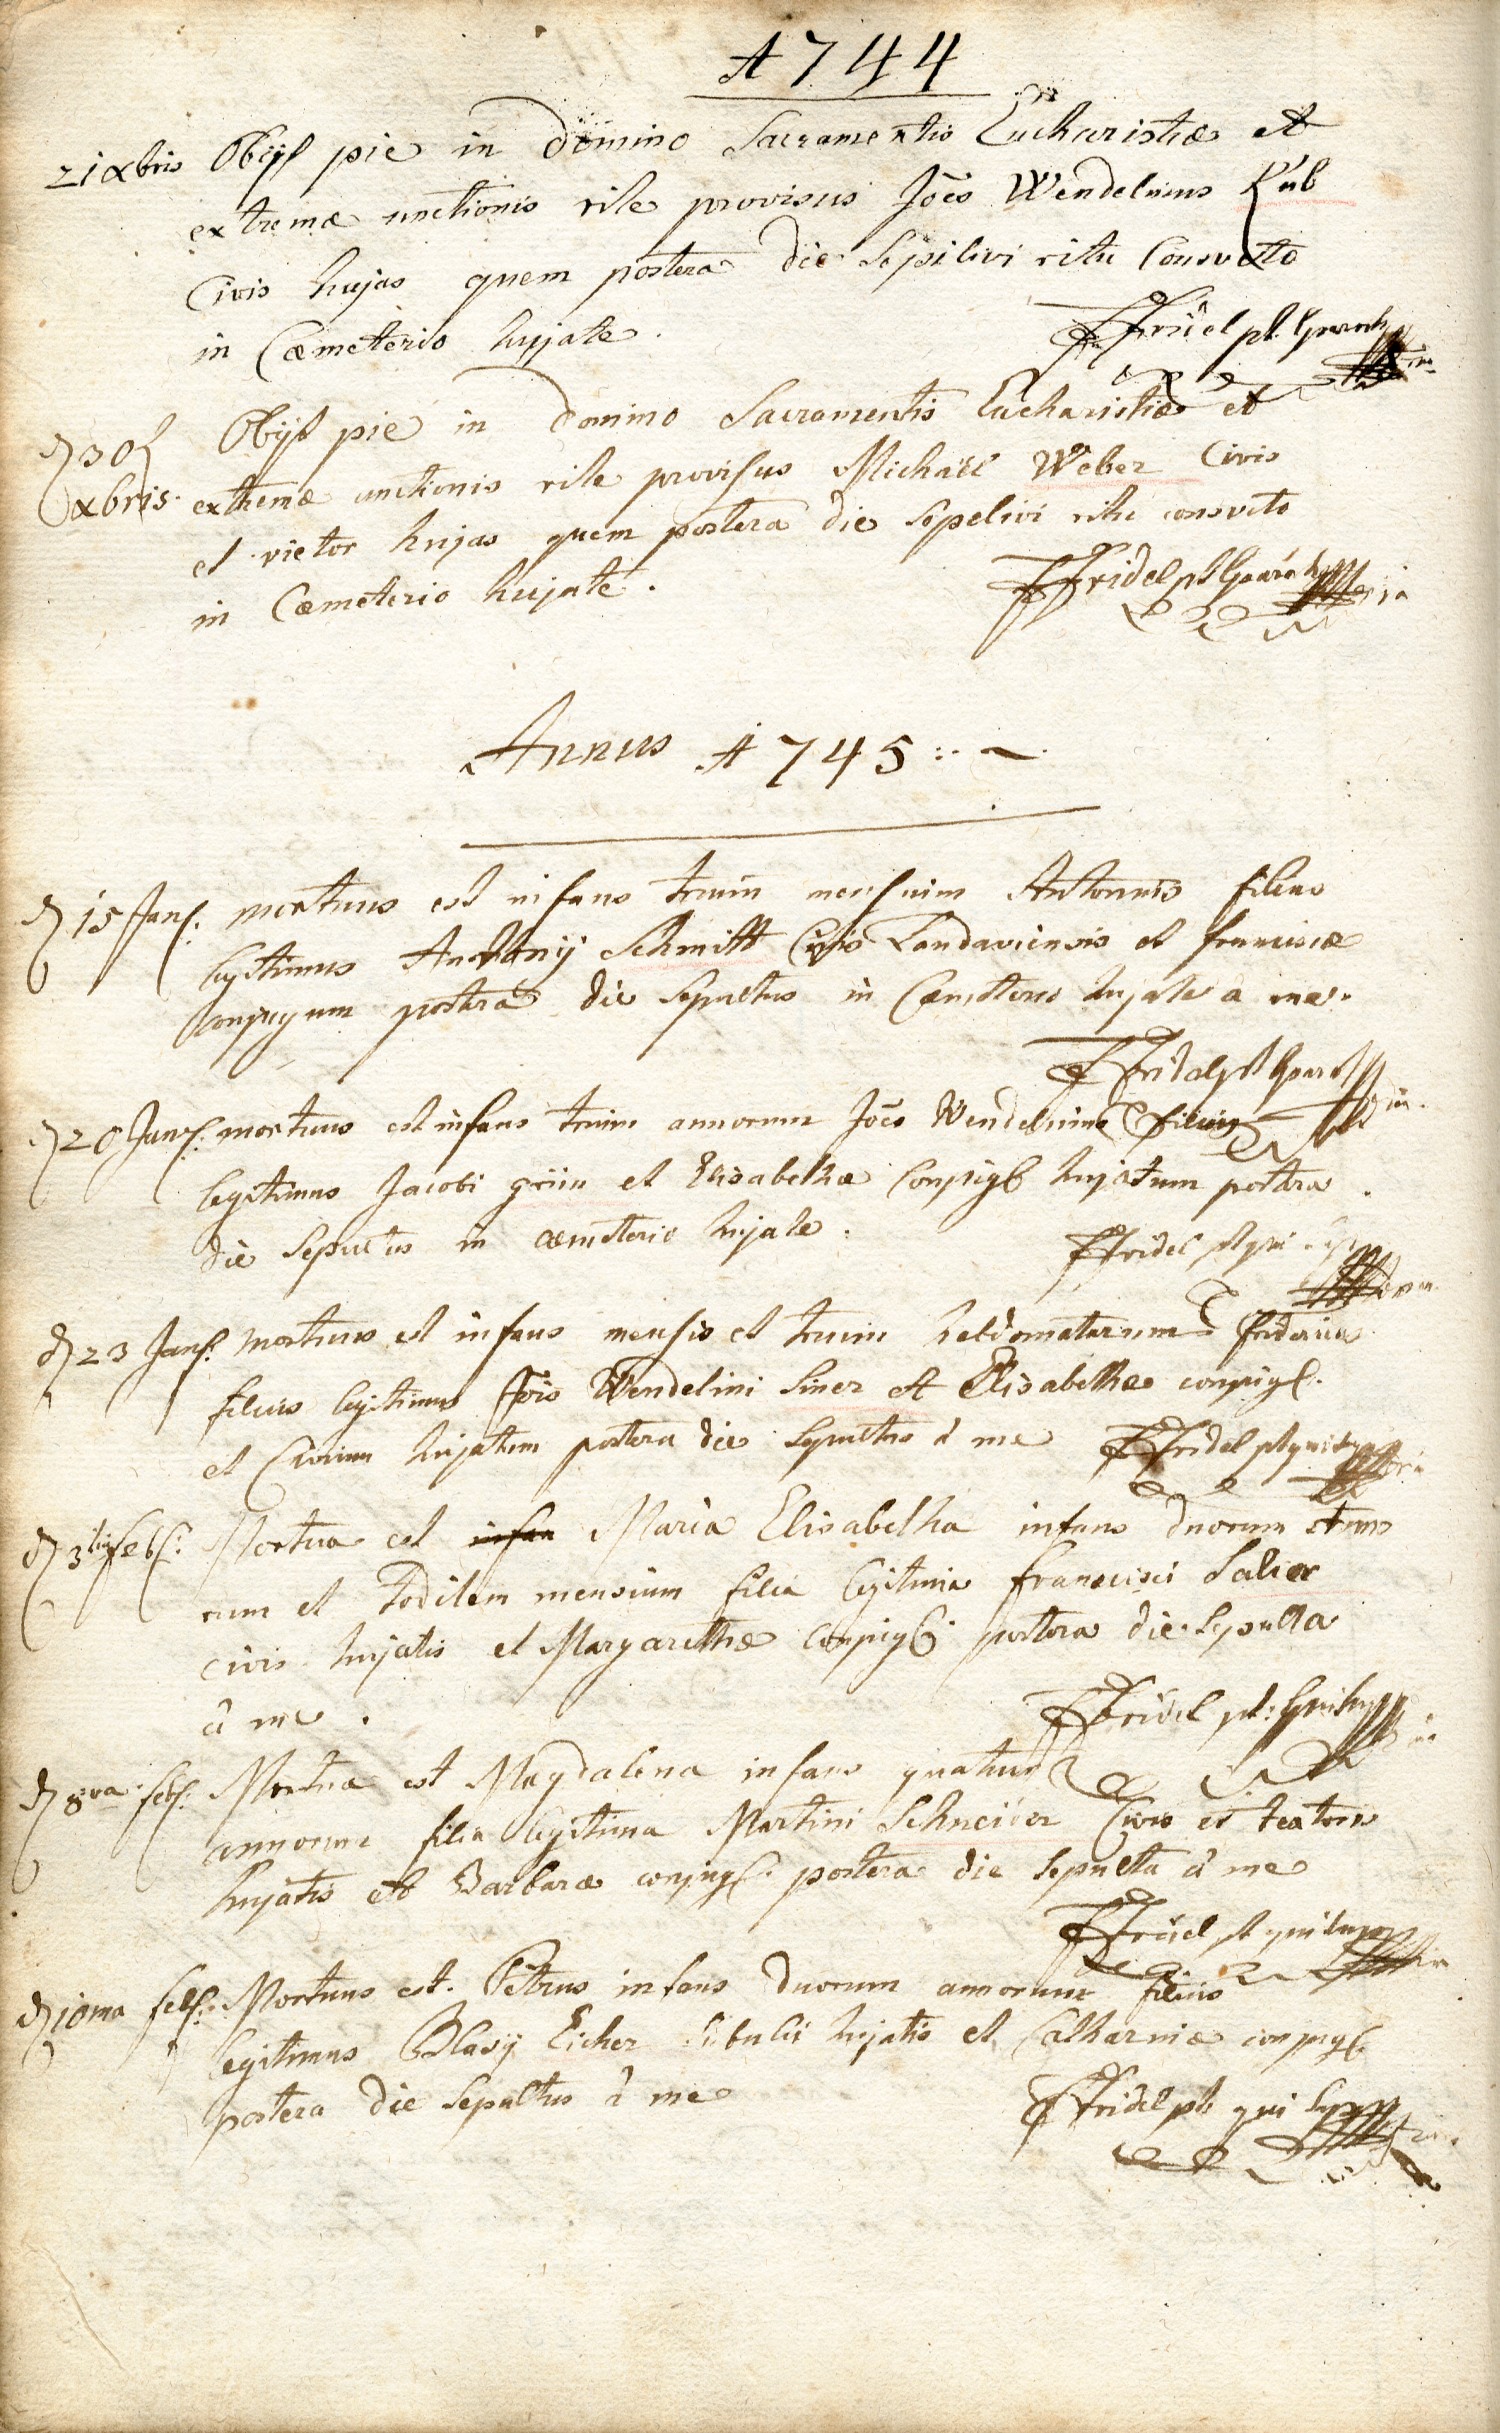 1744
21 xbris Obijt pie in Domino Sacramentis Eucharistiæ et
extremæ unctionis rite provisus Jões Wendelinus Kúb
Civis hujas quem postera die Sepelivi ritu Consveto
in Cœmeterio hujate.
FFridel pt.
d 30
xbris. Obijt pie in Domino Sacramentis Eucharistiæ et
extremæ unctionis rite provisus Michaël Weber Civis
et vietor hujas quem postera die Sepelivi ritu consveto
in Cœmeterio hujate.
FFridel pt
Annus 1745
d 15 Jan: mortuus est infans trium mensium Antonius filius
legitimus Anthonij Schmitt Civis Landaviensis et franciscæ
conjugum postera die Sepultus in Cœmeterio hujate a me.
FFridel pt
d 20 Jan: mortuus est infans trium annorum Jões Wendelinus filius
legitimus Jacobi grün et Elisabethæ Conjug: hujatum postera
die Sepultus in cœmeterio hujate.
FFridel pt
d 23 Jan: Mortuus est infans mensis et trium hebdomatarum fridericus
filius legitimus Jois Wendelini Siner et Elisabethæ conjug:
et Civium hujatum postera die Sepultus à me FFridel pt
d 3tia feb: Mortua est infan Maria Elisabetha infans duorum anno
rum et todidem mensium filia legitima francisci Salier
civis hujatis et Margarethæ Conjug: postera die Sepulta
à me.
FFridel pt:
d 8va feb: Mortua est Magdalena infans quatuor
annorum filia legitima Martini Schneider Civis et textoris
hujatis et Barbaræ conjug: postera die sepulta à me
FFridel pt
d 10ma feb: Mortuus est. Petrus infans duorum annorum filius
legitimus Blasij Eicher hujatis et Catharinæ conjug:
postera die Sepultus à me
FFridel pt